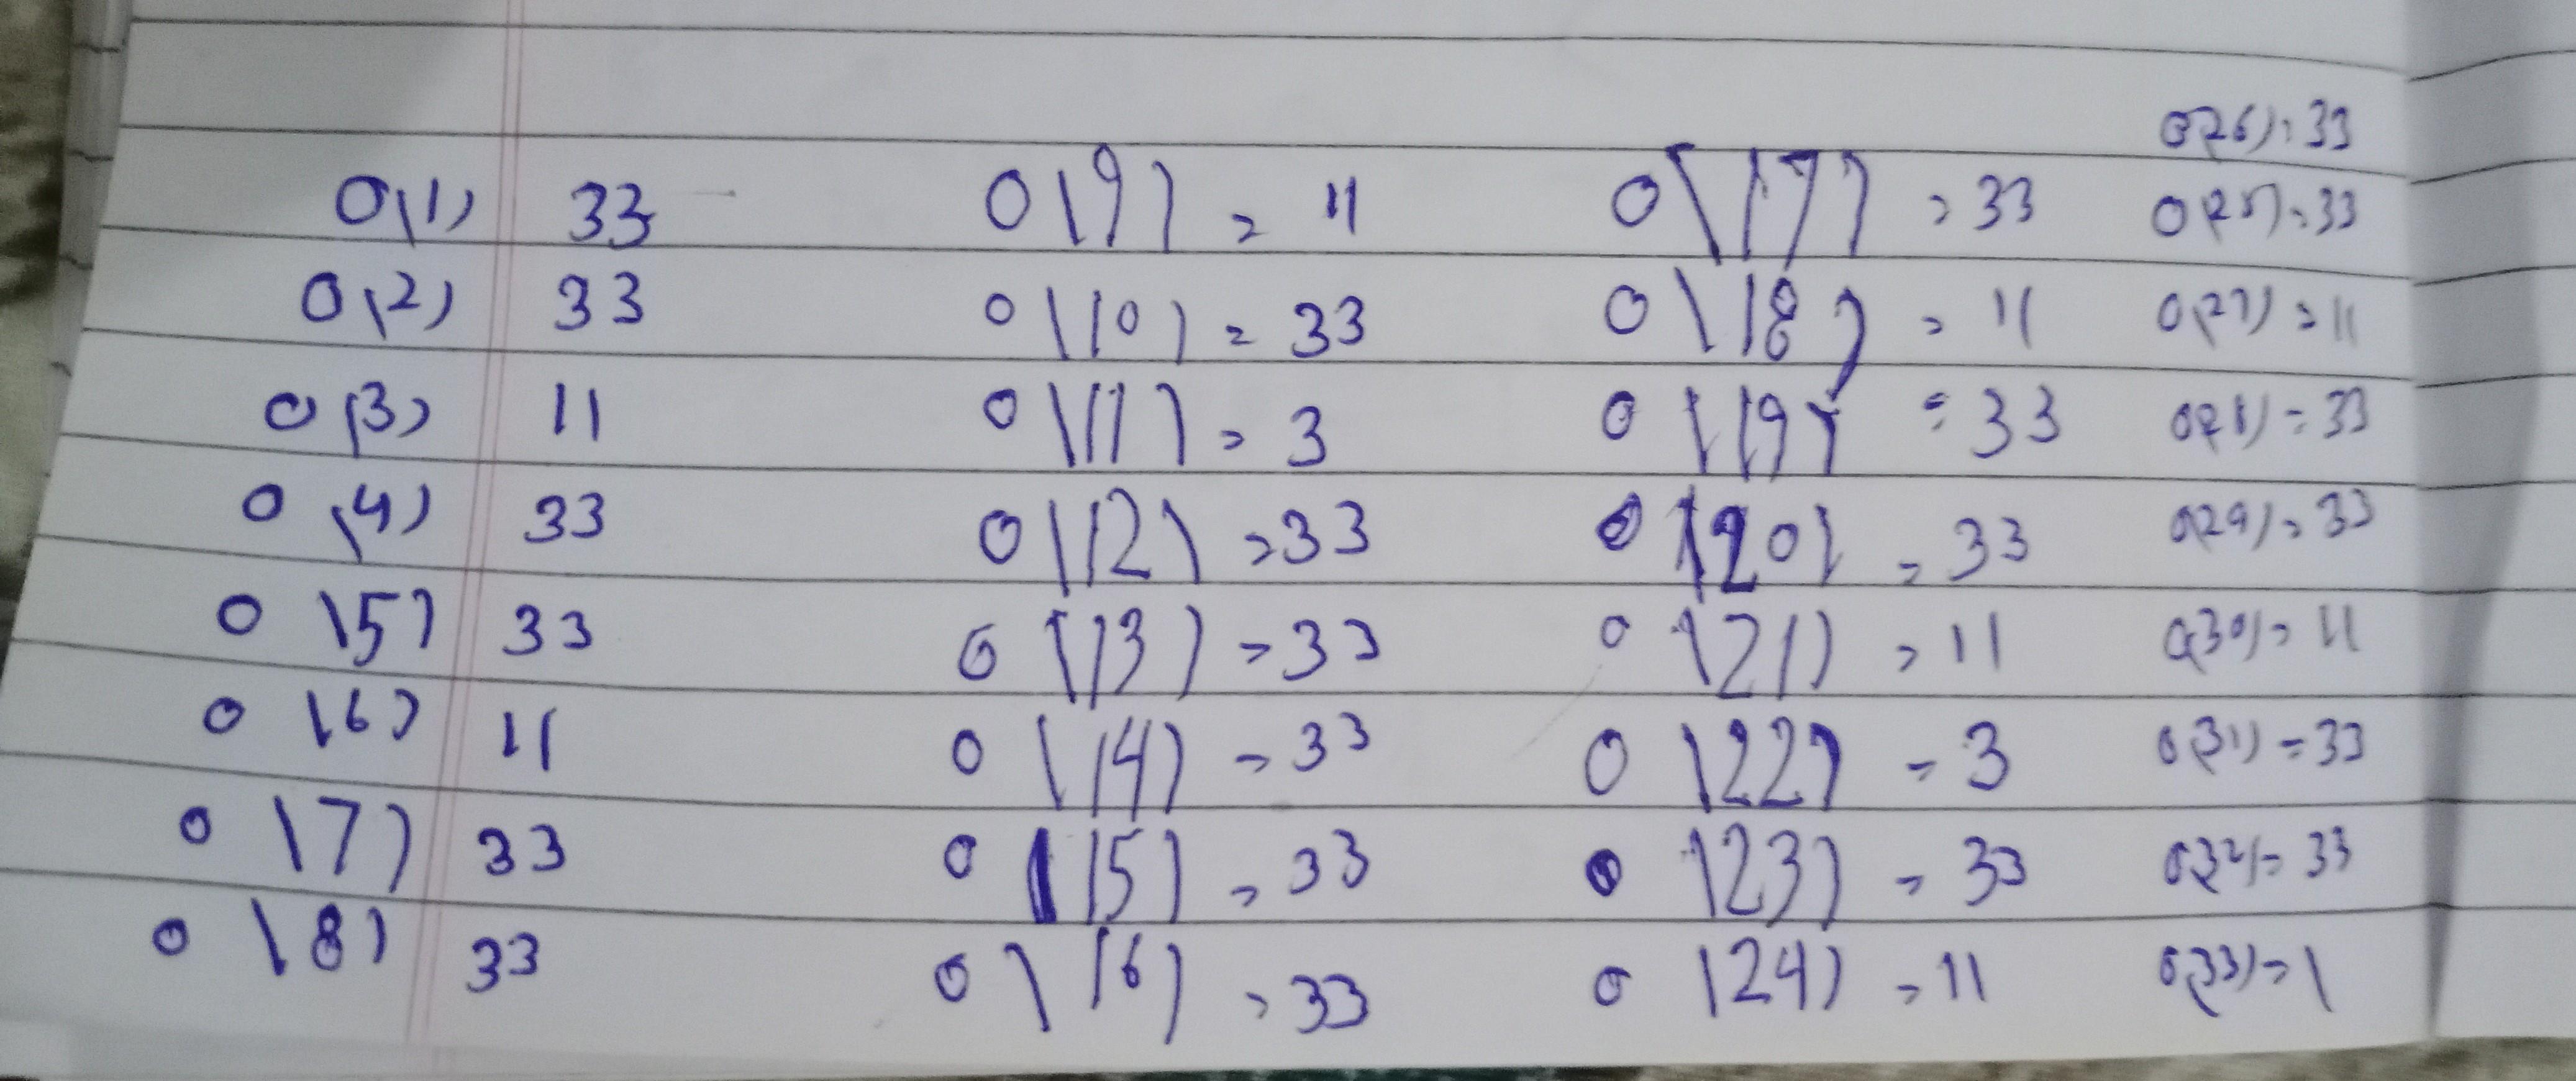 O(1) 33
O(2) 33
O(3) 11
O(4) 33
O(5) 33
O(6) 11
O(7) 33
O(8) 33
O(9) = 11
O(10) = 33
O(11) = 3
O(12) = 33
O(13) = 33
O(14) = 33
O(15) = 33
O(16) = 33
O(17) = 33
O(18) = 11
O(19) = 33
O(20) = 33
O(21) = 11
O(22) = 3
O(23) = 33
O(24) = 11
O(26) = 33
O(25) = 33
O(27) = 11
O(28) = 33
O(29) = 33
O(30) = 11
O(31) = 33
O(32) = 33
O(33) = 1